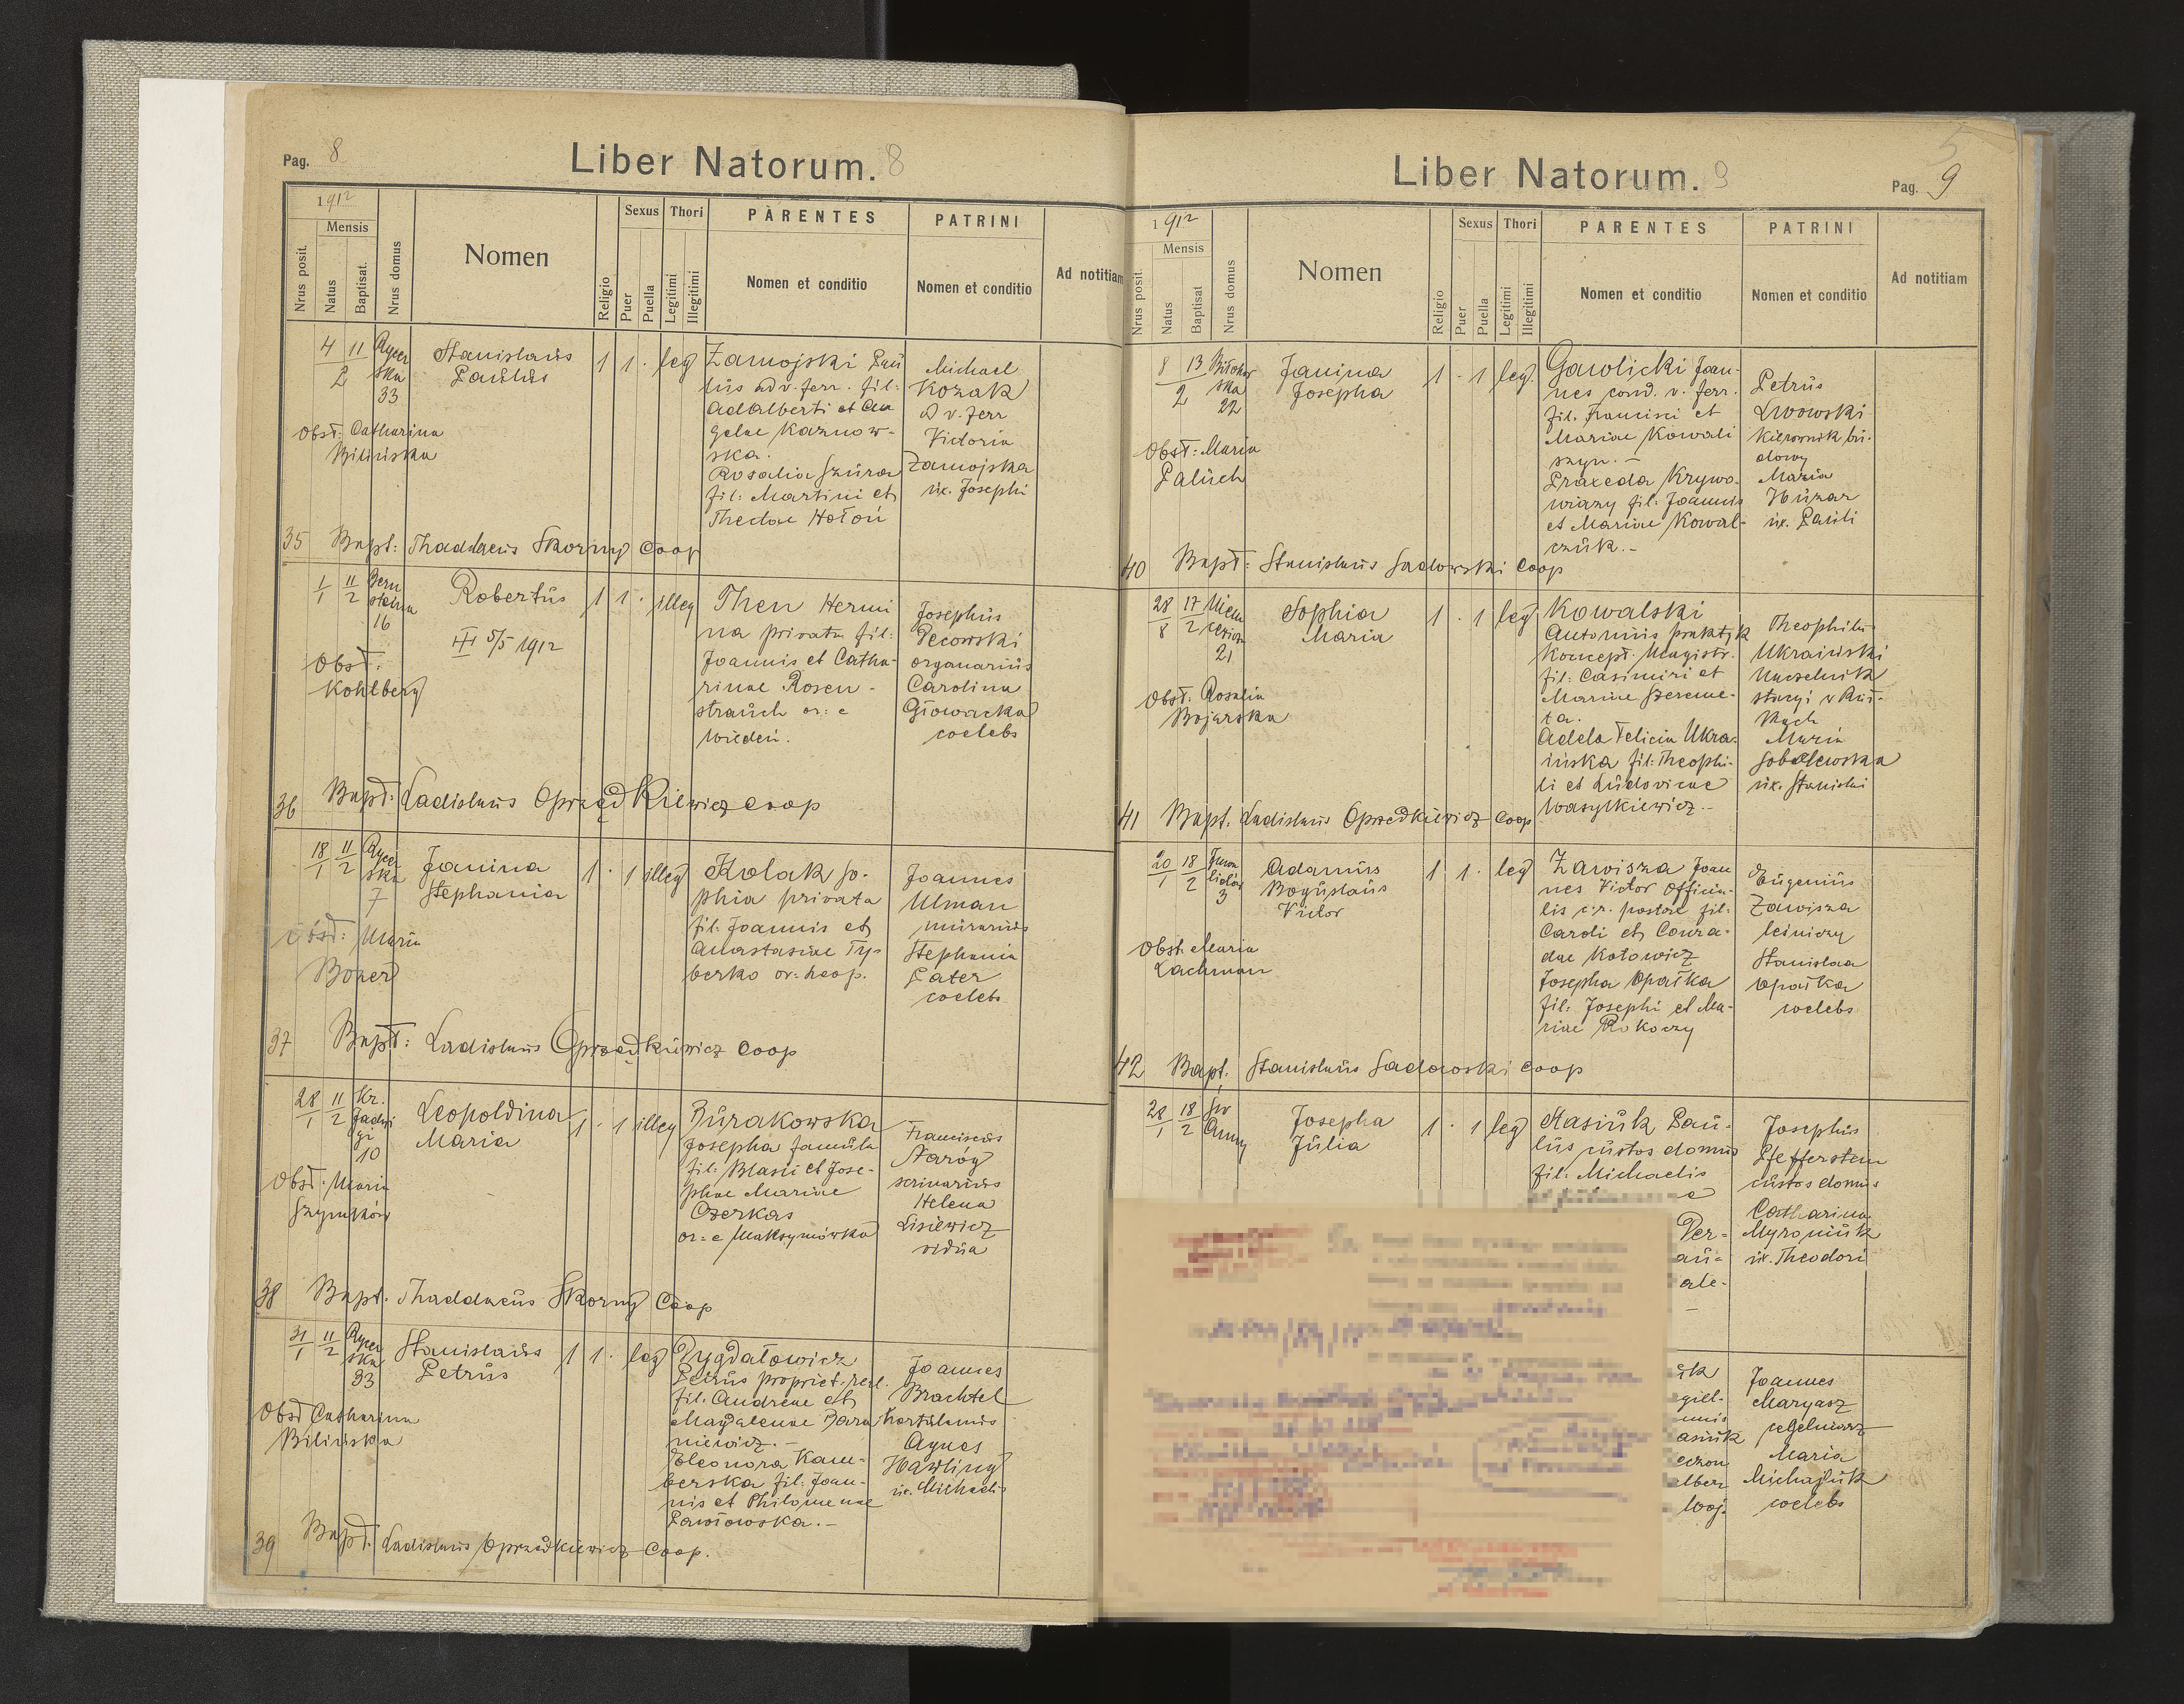 Pag. 8
Liber Natorum. 8
1912
Mensis
Nrus posit.
Natus
Baptisat.
Nrus domus
Nomen
Religio
Sexus
Puer
Puella
Thori
Legitimi
Illegitimi
PARENTES
Nomen et conditio
PATRINI
Nomen et conditio
Ad notitiam
4 11
2
Rycer
ska
33
Stanislaus
Paulus
1 1 · leg
Zamojski Pau
lus adv. ferr. fil:
Adalberti et An
gelae Kaznow-
ska.
Rosalia Szura
fil: Martini et
Theclae Hołoń
Michael
Kozak
v. ferr
Victoria
Zamojska
ux. Josephi
Obst: Catharina
Bilińska
35 Bapt: Thaddaeus Skorny Coop
1/1 11/2
16
Robertus
5/5 1912
1 1 · illeg
Then Hermi
na privata fil:
Joannis et Catha-
rinae Rosen-
strauch or: e
Wiedeń.
Josephus
Pecowski
organarius
Carolina
Głowacka
coelebs
Obst:
Kohlberg
36 Bapt: Ladislaus Oprządkiewicz Coop
18/1 11/2
Rycer
ska
7
Janina
Stephania
1 · 1 illeg
Kolak So-
phia privata
fil: Joannis et
Anastasiae Ty-
berko or: Leop.
Joannes
Ulman
murarius
Stephania
Pater
coelebs
Obst: Maria
37 Bapt: Ladislaus Oprządkiewicz Coop
28/1 11/2
Kr.
Jadwi
gi
10
Leopoldina
Maria
1 · 1 illeg
Burakowska
Josepha famula
fil: Blasii et Jose-
phae Mariae
Czerkas
or: e Maksymówka
Franciscus
Naróg
scrinarius
Helena
Lisiewicz
vidua
Obst: Maria
Szymków
38 Bapt. Thaddaeus Skorny Coop
31/1 11/2
Rycer
ska
33
Stanislaus
Petrus
1 1 · leg
Petrus propriet. real.
fil. Andreae et
Magdalenae Bara
niewicz.-
Eleonora Kam-
berska fil: Joan-
nis et Philomenae
Pawłowska.-
Joannes
Brachtel
hortulanus
Agnes
Hawling
ux. Michaelis
Obst Catharina
Bilińska
39 Bapt. Ladislaus Oprządkiewicz Coop.
Liber Natorum. 9
Pag. 9
1912
Mensis
Nrus posit.
Natus
Baptisat
Nrus domus
Nomen
Religio
Sexus
Puer
Puella
Thori
Legitimi
Illegitimi
PARENTES
Nomen et conditio
PATRINI
Nomen et conditio
Ad notitiam
8 13
2
22
Janina
Josepha
1 · 1 leg.
Gawlicki Joan-
nes cond. v. ferr.
fil. Francisci et
Mariae Kowali
szyn.-
Praxeda Krywo-
wiazy fil: Joannis
et Mariae Kowal-
czuk.-
Petrus
Lwowski
Kierownik bu-
dowy
Maria
Huzar
ux. Pauli
Obst: Maria
Paluch
40 Bapt: Stanislaus Sadowski Coop
28/8 17/2
Niem
cewicza
21
Sophia
Maria
1 · 1 leg
Kowalski
Antonius praktyk
koncept. Magistr.
fil: Casimiri et
Mariae Szereme-
ta.
Adela Felicia Ukra-
ińska fil: Theophi-
li et Ludovicae
Wasylkiewicz.-
Theophilus
Ukraiński
Naczelnik
stacyi w
Maria
Sobolewska
ux. Stanislai
Obst: Rosalia
Bojarska
41 Bapt. Ladislaus Oprządkiewicz Coop
20/1 18/2
3
Adamus
Boguslaus
Victor
1 1 · leg
Zawisza Joan
nes Victor officia-
lis c.r. postal fil:
Caroli et Conra-
dae Kotowicz
Josepha Opałka
fil: Josephi et Ma-
riae Rokoczy
Eugenius
Zawisza
leśniczy
Stanislaa
Opałka
coelebs
Obst: Maria
Lachman
42 Bapt. Stanislaus Sadowski Coop
28/1 18/2
Św
Anny
Josepha
Julia
1 · 1 leg
Stasiuk Pau-
lus custos domus
fil: Michaelis
Per-
au-
ale-
Josephus
Pfefferstein
custos domus
Catharina
Myroniuk
ux. Theodori
uk
asiuk
Joannes
Maryasz
Maria
Michajluk
coelebs